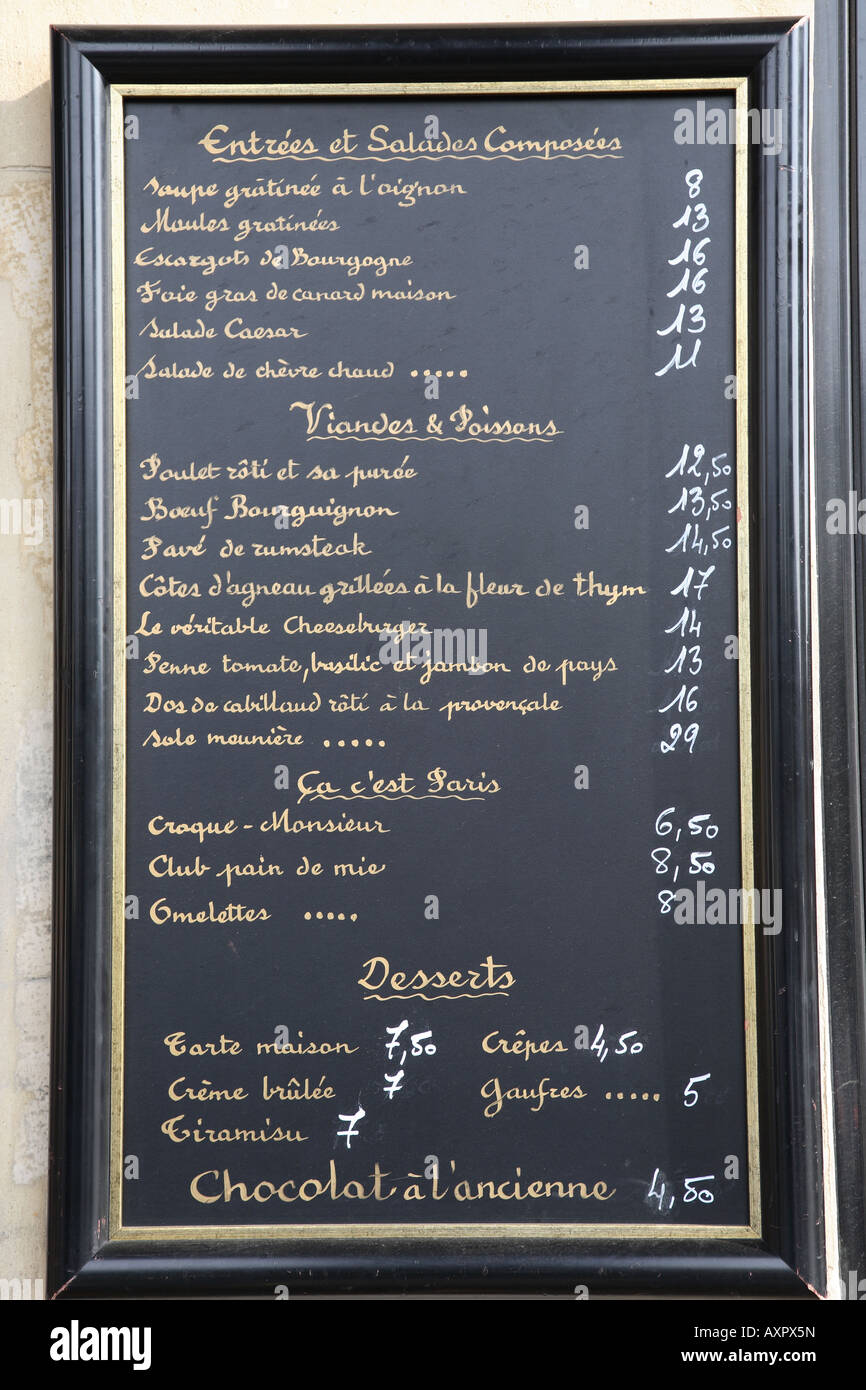 Entrées et Salades Composées
Soupe grâtinée à l'oignon 8
Moules gratinées 13
Escargots de Bourgogne 16
Foie gras de canard maison 16
Salade Caesar 13
Salade de chèvre chaud ..... 11
Viandes & Poissons
Poulet rôti et sa purée 12,50
Bœuf Bourguignon 13,50
Pavé de rumsteak 14,50
Côtes d'agneau grillées à la fleur de thym 17
Le véritable Cheeseburger 14
Penne tomate, basilic et jambon de pays 13
Dos de cabillaud rôti à la provençale 16
Sole meunière ..... 29
Ça c'est Paris
Croque-Monsieur 6,50
Club pain de mie 8,50
Omelettes ..... 8
Desserts
Tarte maison 7,50 Crêpes 4,50
Crème brûlée 7 Gaufres ..... 5
Tiramisu 7
Chocolat à l'ancienne 4,50
alamy
Image ID: AXPX5N
www.alamy.com